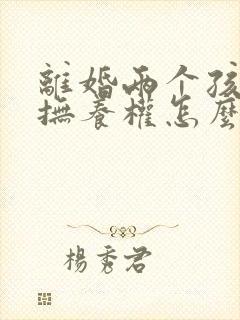 離婚兩个孩
撫養權怎麼
楊秀君